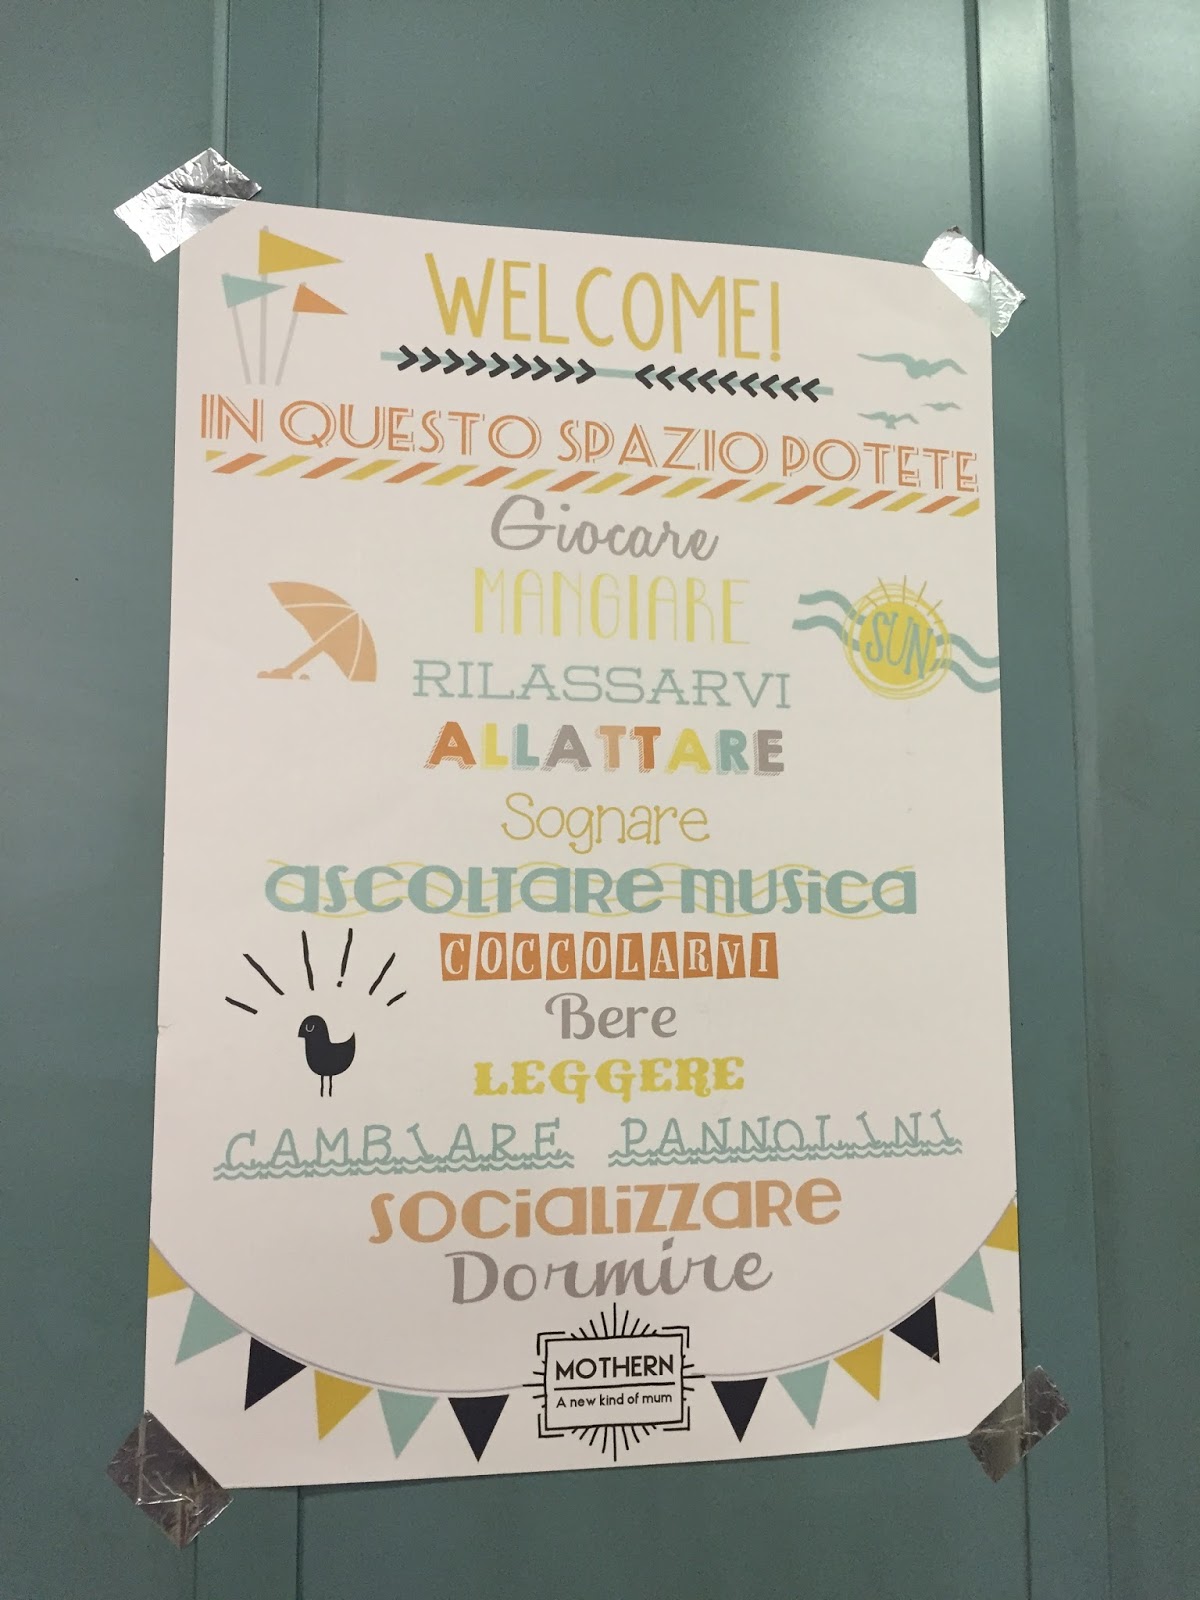 WELCOME!
IN QUESTO SPAZIO POTETE
Giocare
MANGIARE
RILASSARVI
SUN
ALLATTARE
Sognare
ascoltare musica
COCCOLARVI
Bere
LEGGERE
CAMBIARE PANNOLINI
socializzare
Dormire
MOTHERN
A new kind of mum